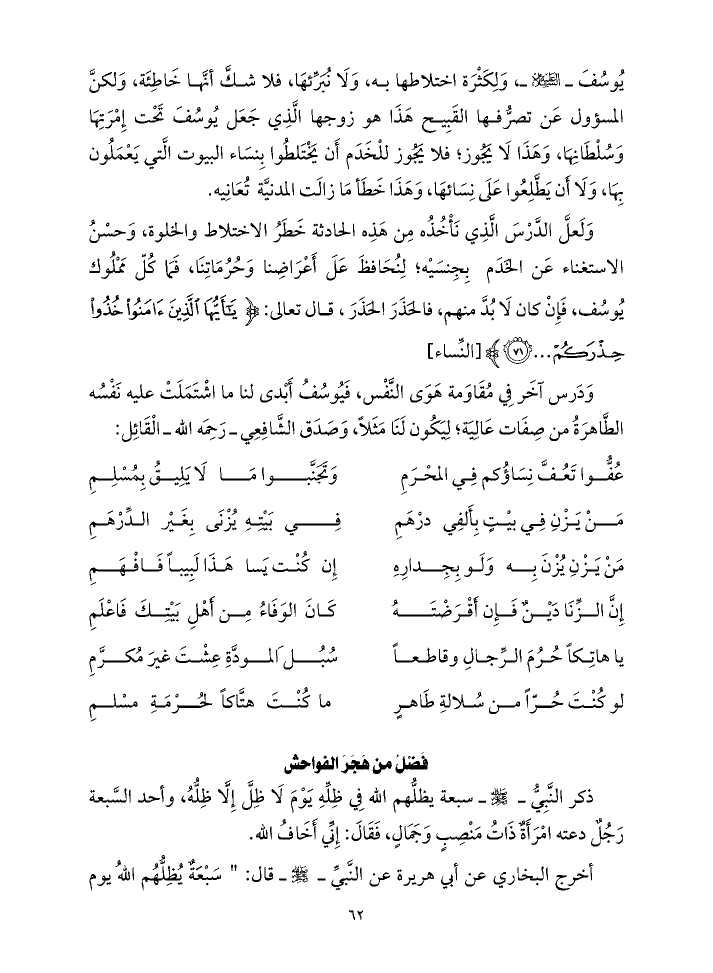 يُوسُفَ ـ ﵇ ـ، وَلِكَثْرَة اختلاطها به، وَلَا نُبَرِّئهَا، فلا شـكَّ أنَّهـا خَاطِئَة، وَلكنَّ
المسؤول عَن تصرُّفـها القَبِيـح هَذَا هو زوجها الَّذِي جَعَل يُوسُفَ تَحْت إِمْرَتِهَا
وَسُلْطَانِهَا، وَهَذَا لَا يَجُوز؛ فلا يَجُوز للْخَدَم أَن يَخْتَلطُوا بِنسَاء البيوت الَّتي يَعْمَلُون
بِهَا، وَلَا أَن يَطَّلِعُوا عَلَى نِسَائهَا، وَهَذَا خَطَأ مَا زالَت المدنيَّة تُعَانِيه.
وَلَعلَّ الدَّرْسَ الَّذِي نَأْخُذُه مِن هَذِه الحادثة خَطَرُ الاختلاط والخلوة، وَحسْنُ
الاستغناء عَن الخَدَم بِجِنسَيْه؛ لِنُحَافظَ عَلَى أَعْرَاضِنا وَحُرُمَاتِنَا، فَمَا كُلّ مَمْلُوك
يُوسُف، فَإِنْ كان لَا بُدَّ منهم، فالحَذَرَ الحَذَرَ، قـال تعالى: ﴿ يَـٰٓأَيُّهَا ٱلَّذِينَ ءَامَنُوا۟ خُذُوا۟
حِذْرَكُمْ... ٧١ ﴾ [النِّساء]
وَدَرس آخَر فِي مُقَاوَمة هَوَى النَّفْس، فَيُوسُفُ أَبْدى لنا ما اشْتَمَلَتْ عليه نَفْسُه
الطَّاهرَةُ من صِفَات عَالِيَة؛ لِيَكُون لَنَا مَثَلاً، وَصَدَق الشَّافعِي ـ رَحِمَه الله ـ القَائِل:
عُفُّـوا تَعُفَّ نِسَاؤُكم فـي المحْرَمِ وَتَجَنَّبـوا مَـا لَا يَلِيـقُ بِمُسْلِـمِ
مَـنْ يَـزْنِ فـي بيْـتٍ بِأَلفِي درْهَمِ فـي بَيْتِهِ يُزْنَى بِغَيْر الـدِّرْهَـمِ
مَنْ يَـزْنِ يُزْنَ بِـهِ وَلَـو بِجِـدارِهِ إِن كُنْـت يَـسا هَـذَا لَبِيباً فَـافْـهَـمِ
إِنَّ الـزِّنَا دَيْـنٌ فَـإِن أَقْـرَضْتَـهُ كَـانَ الوَفَاءُ مِـن أَهْلِ بَيْتِـكَ فَاعْلَمِ
يا هاتِكـاً حُرُمَ الـرِّجالِ وقاطعـاً سُبُـلَ المـودَّةِ عِشْـتَ غيرَ مُكـرَّمِ
لو كُنْتَ حُـرّاً مـن سُـلالةِ طَاهرٍ ما كُنْـتَ هتَّاكاً لِحُـرْمَـةِ مسْلـمِ
فَضْلُ من هَجَرَ الفواحش
ذكر النَّبِيُّ ـ ﷺ ـ سبعة يظلُّهم الله فِي ظِلِّهِ يَوْمَ لَا ظِلَّ إِلَّا ظِلُّهُ، وأحد السَّبعة
رَجُلٌ دعته امْرَأَةٌ ذَاتُ مَنْصِبٍ وَجَمَالٍ، فَقَالَ: إِنِّي أَخَافُ الله.
أخرج البخاري عن أبي هريرة عن النَّبيِّ ـ ﷺ ـ قال: " سَبْعَةٌ يُظِلُّهُم اللهُ يوم
٦٢